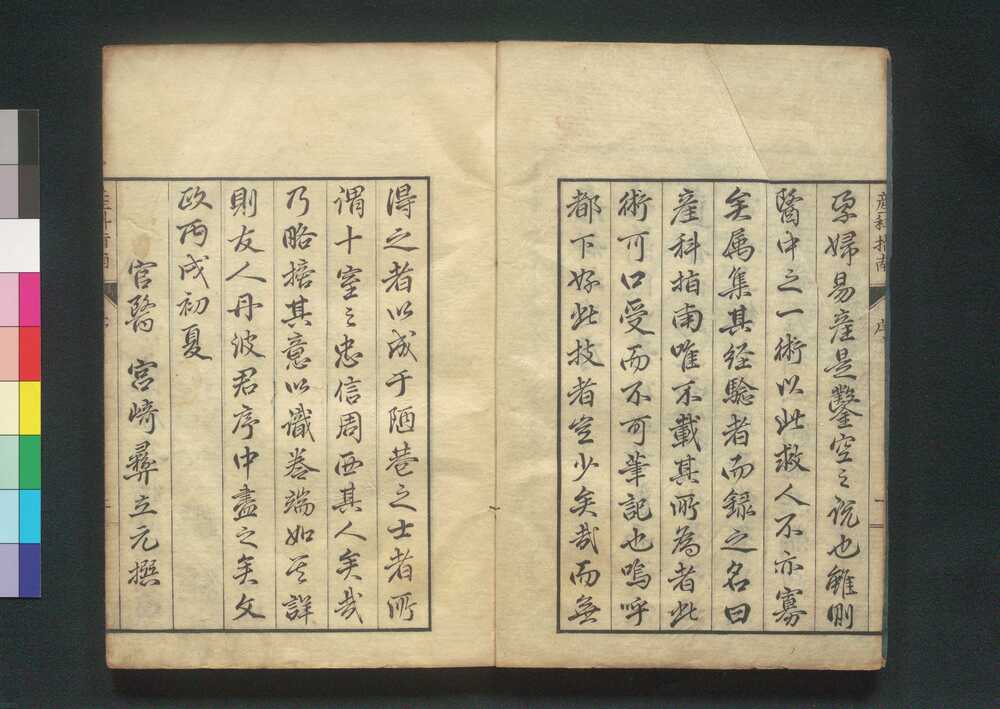 産科指南
序
孕婦易産是鑿空之説也雖則
醫中之一術以此救人不亦寡
矣属集其経驗者而録之名曰
産科指南唯不載其所為者此
術可口受而不可筆記也嗚呼
都下好此技者豈少矣哉而無
得之者以成于陋巷之士者所
謂十室之忠信周西其人矣哉
乃略摭其意以識巻端如其詳
則友人丹波君序中盡之矣文
政丙戌初夏
官醫 宮崎彛立元撰